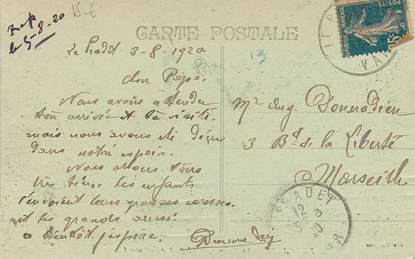 R.P.
le 5-8-20
CARTE POSTALE
13
Le Pradet 3-8-1920
Cher Papa,
Nous avons attendu
ton arrivée et ta visite
mais nous avons été déçus
dans notre espoir.
Nous allons tous
très bien. Les enfants
t'envoient leurs grosses caresses
et les grands aussi
à bientôt j'espère.
Mr Aug Donnadieu
3 Bd de la Liberté
Marseille
LE PR
VAR
PRADET
12
3-8
20
VAR